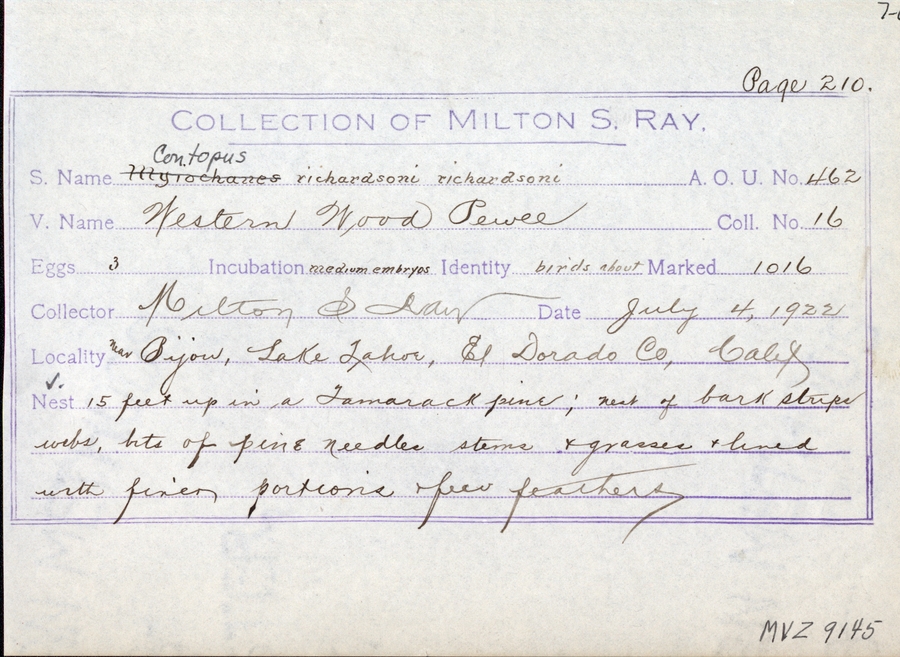 7-
Page 210.
COLLECTION OF MILTON S. RAY.
Contopus
S. Name Myiochanes richardsoni richardsoni A. O. U. No. 462
V. Name Western Wood Pewee Coll. No. 16
Eggs 3 Incubation medium embryos Identity birds about Marked 1016
Collector Milton S Ray Date July 4, 1922
Locality near Bijou, Lake Tahoe, El Dorado Co, Calif
✓.
Nest 15 feet up in a Tamarack pine; nest of bark strips
webs, bits of pine needles stems & grasses & lined
with finer portions & few feathers
MVZ 9145